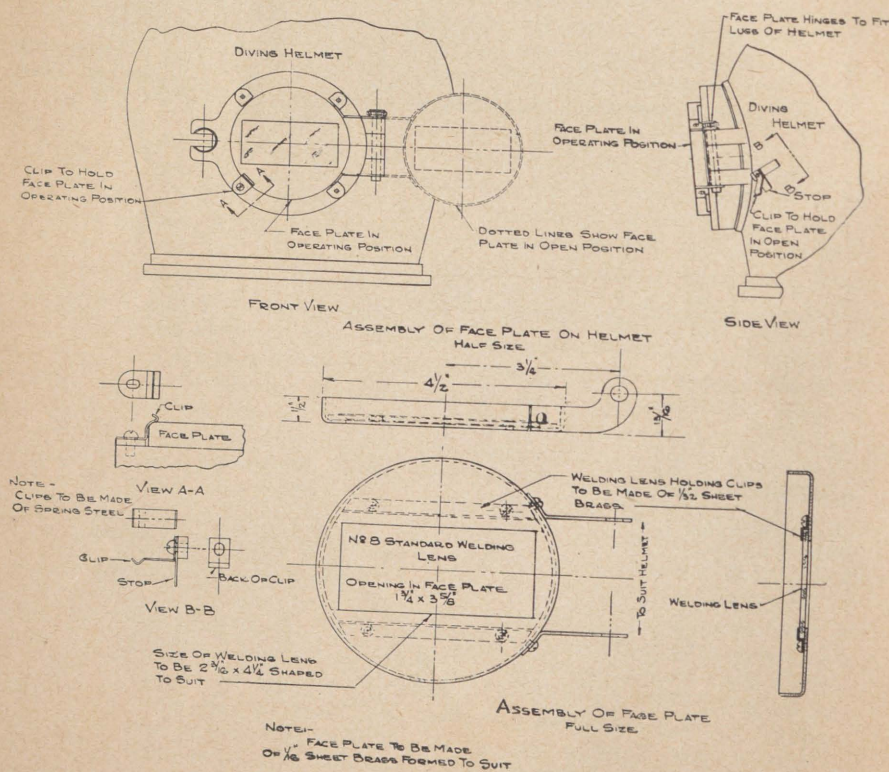 DIVING HELMET
CLIP TO HOLD
FACE PLATE IN
OPERATING POSITION
A
A
FACE PLATE IN
OPERATING POSITION
DOTTED LINES SHOW FACE
PLATE IN OPEN POSITION
FRONT VIEW
FACE PLATE HINGES TO FIT
LUGS OF HELMET
DIVING
HELMET
FACE PLATE IN
OPERATING POSITION
B
B
STOP
CLIP TO HOLD
FACE PLATE
IN OPEN
POSITION
SIDE VIEW
ASSEMBLY OF FACE PLATE ON HELMET
HALF SIZE
3 1/4"
4 1/2"
CLIP
FACE PLATE
VIEW A-A
NOTE -
CLIPS TO BE MADE
OF SPRING STEEL
CLIP
STOP
BACK OF CLIP
VIEW B-B
WELDING LENS HOLDING CLIPS
TO BE MADE OF 1/32 SHEET
BRASS
Nº 8 STANDARD WELDING
LENS
OPENING IN FACE PLATE
1 3/4" x 3 5/8"
TO SUIT HELMET
WELDING LENS
SIZE OF WELDING LENS
TO BE 2 3/16" x 4 1/4" SHAPED
TO SUIT
ASSEMBLY OF FACE PLATE
FULL SIZE
NOTE:-
FACE PLATE TO BE MADE
OF 1/16" SHEET BRASS FORMED TO SUIT